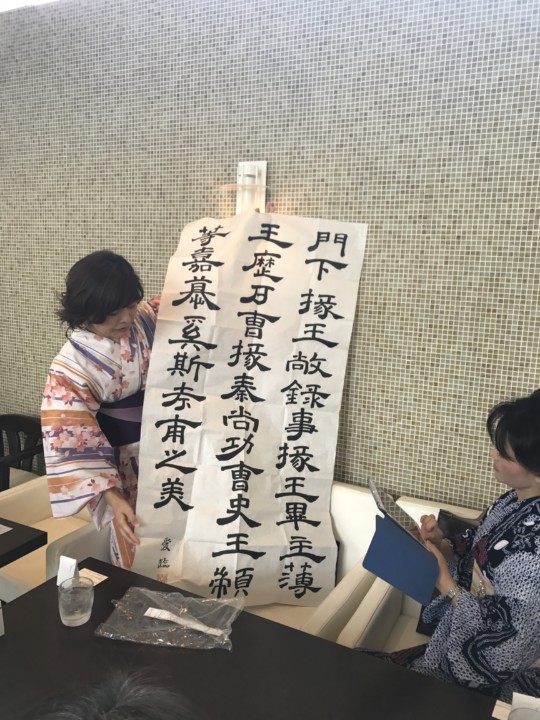 門下掾王敞錄事掾王畢主薄
王歷戶曹掾秦尚功曹史王顓
等嘉慕奚斯考甫之美
臨